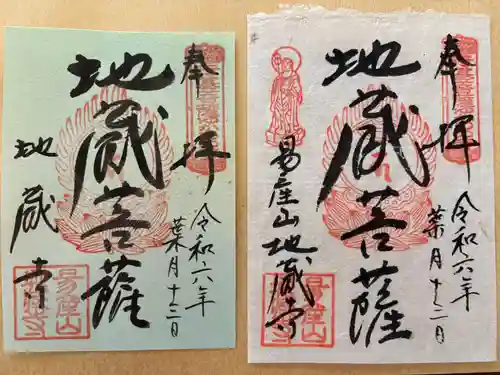 奉拝
令和六年
葉月十三日
地蔵菩薩
地蔵寺
易産山
奉拝
令和六年
葉月十三日
地蔵菩薩
易産山地蔵寺
易産山